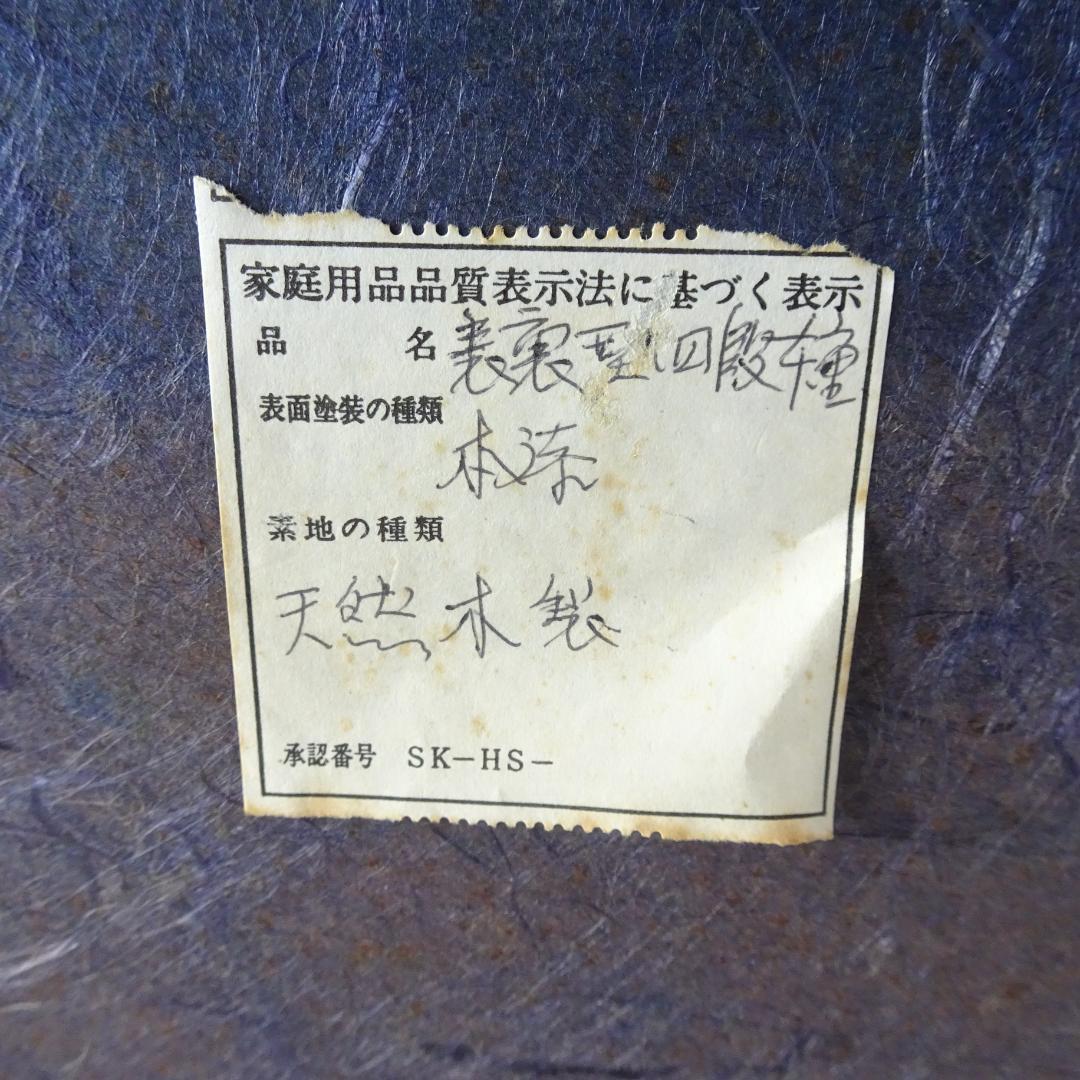 家庭用品品質表示法に基づく表示
品名 裏 型四段
表面塗装の種類
本漆
素地の種類
天然木製
承認番号 SK-HS-